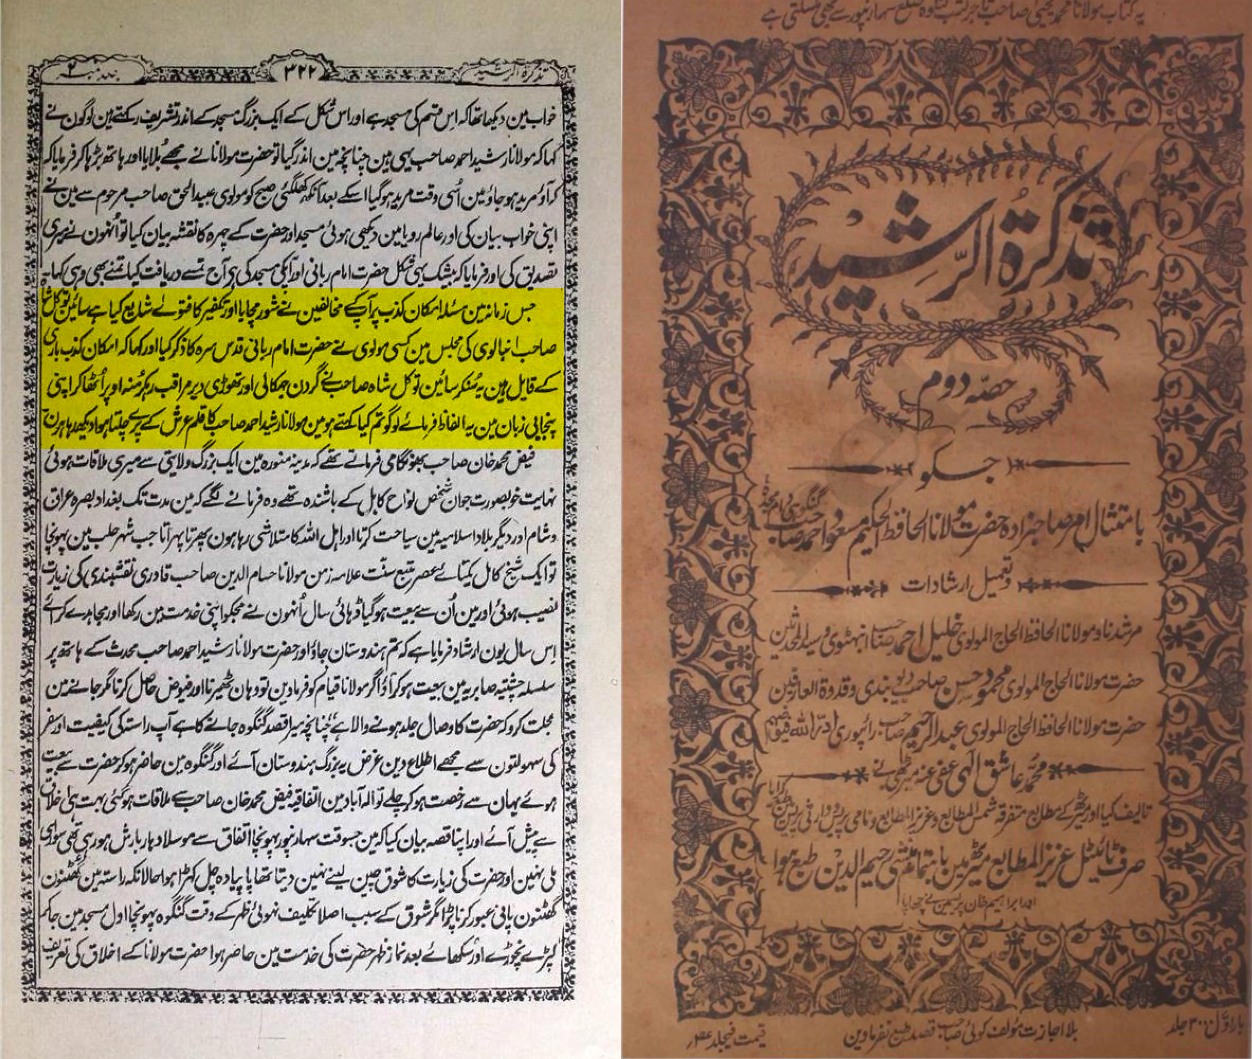 تذکرۃ الرشید
۳۲۲
جلد نمبر ۲
خواب مین دیکھا تھا کہ اِس قسم کی مسجد ہے اور اس شکل کے ایک بزرگ مسجد کے اندر تشریف رکھتے ہین لوگون نے
کہا کہ مولانا رشید احمد صاحب یہی ہین چنانچہ مین اندر گیا تو حضرت مولانا نے مجھے بُلایا اور ہاتھ بڑہا کر فرمایا کہ
کہ آؤ مرید ہو جاؤ مین اُسی وقت مرید ہو گیا اسکے بعد آنکھ کھلگئی صبح کو مولوی عبد الحق صاحب مرحوم سے مین نے
اپنی خواب بیان کی اور عالم رویا مین دیکھی ہوئی مسجد اور حضرت کے چہرہ کا نقشہ بیان کیا تو اُنھون نے میری
تصدیق کی اور فرمایا کہ بیشک یہی شکل حضرت امام ربانی اور آپکی مسجد کی ہے آج تمسے دریافت کیا تمنے بھی وہی کہا
جس زمانہ مین مسئلہ امکان کذب پر آپکے مخالفین نے شور مچایا اور تکفیر کا فتوےٰ شایع کیا ہے سائین توکل شاہ
صاحب انبالوی کی مجلس مین کسی مولوی نے حضرت امام ربانی قدس سرہ کا ذکر کیا اور کہا کہ امکان کذب باری
کے قایل ہین یہ سُنکر سائین توکل شاہ صاحب نے گردن جھکالی اور تھوڑی دیر مراقب رہکر مُنہ اوپر اُٹھا کر اپنی
پنجابی زبان مین یہ الفاظ فرمائے لوگو تم کیا کہتے ہو مین مولانا رشید احمد صاحب کا قلم عرش کے پرے چلتا ہوا دیکھ رہا ہون
فیض محمد خان صاحب بھونگامی فرماتے تھے کہ مدینہ منورہ مین ایک بزرگ ولایتی سے میری ملاقات ہوئی
نہایت خوبصورت جوان شخص نواح کابل کے باشندہ تھے وہ فرمانے لگے کہ مین مدت تک بغداد بصرہ عراق
و شام اور دیگر بلاد اسلامیہ مین سیاحت کرتا اور اہل اللہ کا متلاشی رہا ہون پھرتا پھراتا جب شہر حلب مین پہونچا
تو ایک شیخ کامل یکتائے عصر متبع سنت علامہ زمن مولانا حسام الدین صاحب قادری نقشبندی کی زیارت
نصیب ہوئی اور مین اُن سے بیعت ہو گیا ڈہائی سال اُنھون نے مجھکو اپنی خدمت مین رکھا اور مجاہدے کرائے
اِس سال یون ارشاد فرمایا ہے کہ تم ہندوستان جاؤ اور حضرت مولانا رشید احمد صاحب محدث کے ہاتھ پر
سلسلہ چشتیہ صابریہ مین بیعت ہو کر آؤ اگر مولانا قیام کو فرماوین تو وہان ٹھیرنا اور فیوض حاصل کرنا مگر جانے مین
عجلت کرو کہ حضرت کا وصال جلد ہونے والا ہے چنانچہ میرا قصد گنگوہ جانے کا ہے آپ راستہ کی کیفیت اور سفر
کی سہولتون سے مجھے اطلاع دین غرض یہ بزرگ ہندوستان آئے اور گنگوہ مین حاضر ہو کر حضرت سے بیعت
ہوئے یہان سے رخصت ہو کر چلے تو الہ آباد مین اتفاقیہ فیض محمد خان صاحب سے ملاقات ہو گئی بہت ہی اخلاق
سے پیش آئے اور اپنا قصہ بیان کیا کہ مین جسوقت سہارنپور پہونچا اتفاق سے موسلا دہار بارش ہو رہی تھی سواری
ملی نہین اور حضرت کی زیارت کا شوق چین لینے نہین دیتا تھا پا پیادہ چل کھڑا ہوا حالانکہ راستہ مین گھٹنون
گھٹنون پانی عبور کرنا پڑا مگر شوق کے سبب اصلا تکلیف نہوئی ظہر کے وقت گنگوہ پہونچا اول مسجد مین جا کر
کپڑے نچوڑے اور سکھائے بعد نماز ظہر حضرت کی خدمت مین حاضر ہوا حضرت مولانا کے اخلاق کی تعریف
یہ کتاب مولانا محمد یحیی صاحب تاجر کتب گنگوہ ضلع سہارنپور سے بھی ملسکتی ہے
تذکرۃ الرشید
حصّہ دوم
جسکو
بامتثال امر صاحبزادہ حضرت مولانا الحافظ الحکیم مسعود احمد صاحب گنگوہی
و تعمیل ارشادات
مرشدنا و مولانا الحافظ الحاج المولوی خلیل احمد صاحب انبہٹوی و سید المحدثین
حضرت مولانا الحاج المولوی محمود حسن صاحب دیوبندی و قدوۃ العارفین
حضرت مولانا الحافظ الحاج المولوی عبد الرحیم صاحب رائپوری
محمد عاشق الٰہی عفی عنہ میرٹھی نے
تالیف کیا اور میرٹھ کے مطابع متفرقہ شمس المطابع و عزیز المطابع و نامی پریس
صرف ٹائٹل عزیز المطابع میرٹھ مین باہتمام منشی رحیم الدین طبع ہوا
ابراہیم خان پریسمین نے چھاپا
بار اوّل ۳۰۰ جلد
بلا اجازت مؤلف کوئی صاحب قصد طبع نفرماوین
قیمت فیجلد